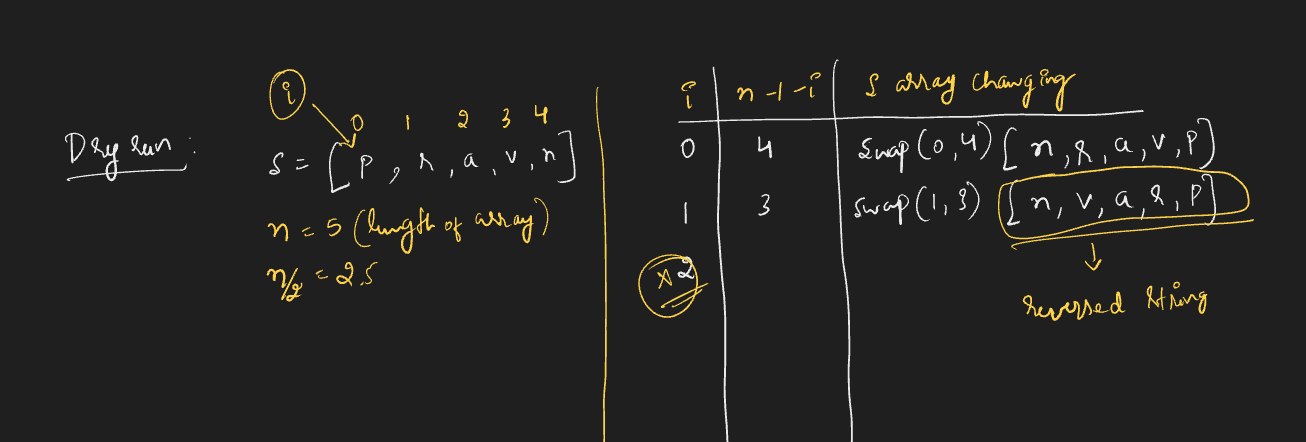 i
0 1 2 3 4
Dry run :
S = [P, r, a, v, n]
n = 5 (length of array)
n/2 = 2.5
i n-1-i S array changing
0 4 swap(0,4) [n, r, a, v, P]
1 3 swap(1,3) [n, v, a, r, P]
x 2
reversed string